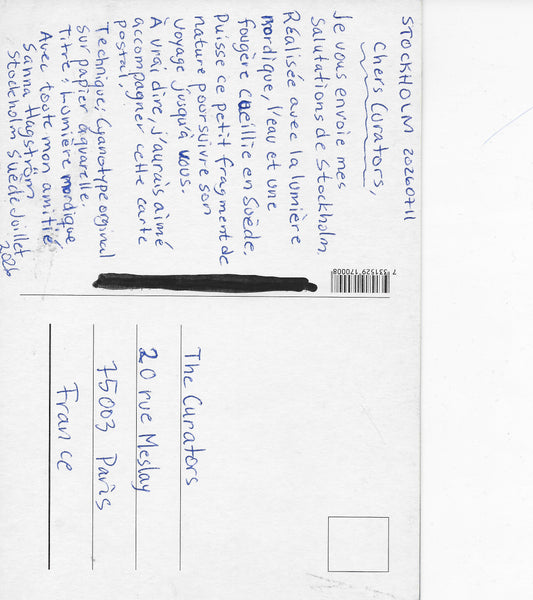 STOCKHOLM 20260711
Chers Curators,
Je vous envoie mes
Salutations de Stockholm.
Réalisée avec la lumière
nordique, l'eau et une
fougère cueillie en Suède.
Puisse ce petit fragment de
nature poursuivre son
voyage jusqu'à vous.
À vrai dire, j'aurais aimé
accompagner cette carte
postal,
Technique: Cyanotype orginal
sur papier aquarelle.
Titre: Lumière nordique
Avec toute mon amitié
Sanna Hagström
Stockholm Suède Juillet
2026
7 331529 170008
The Curators
20 rue Meslay
75003 Paris
France